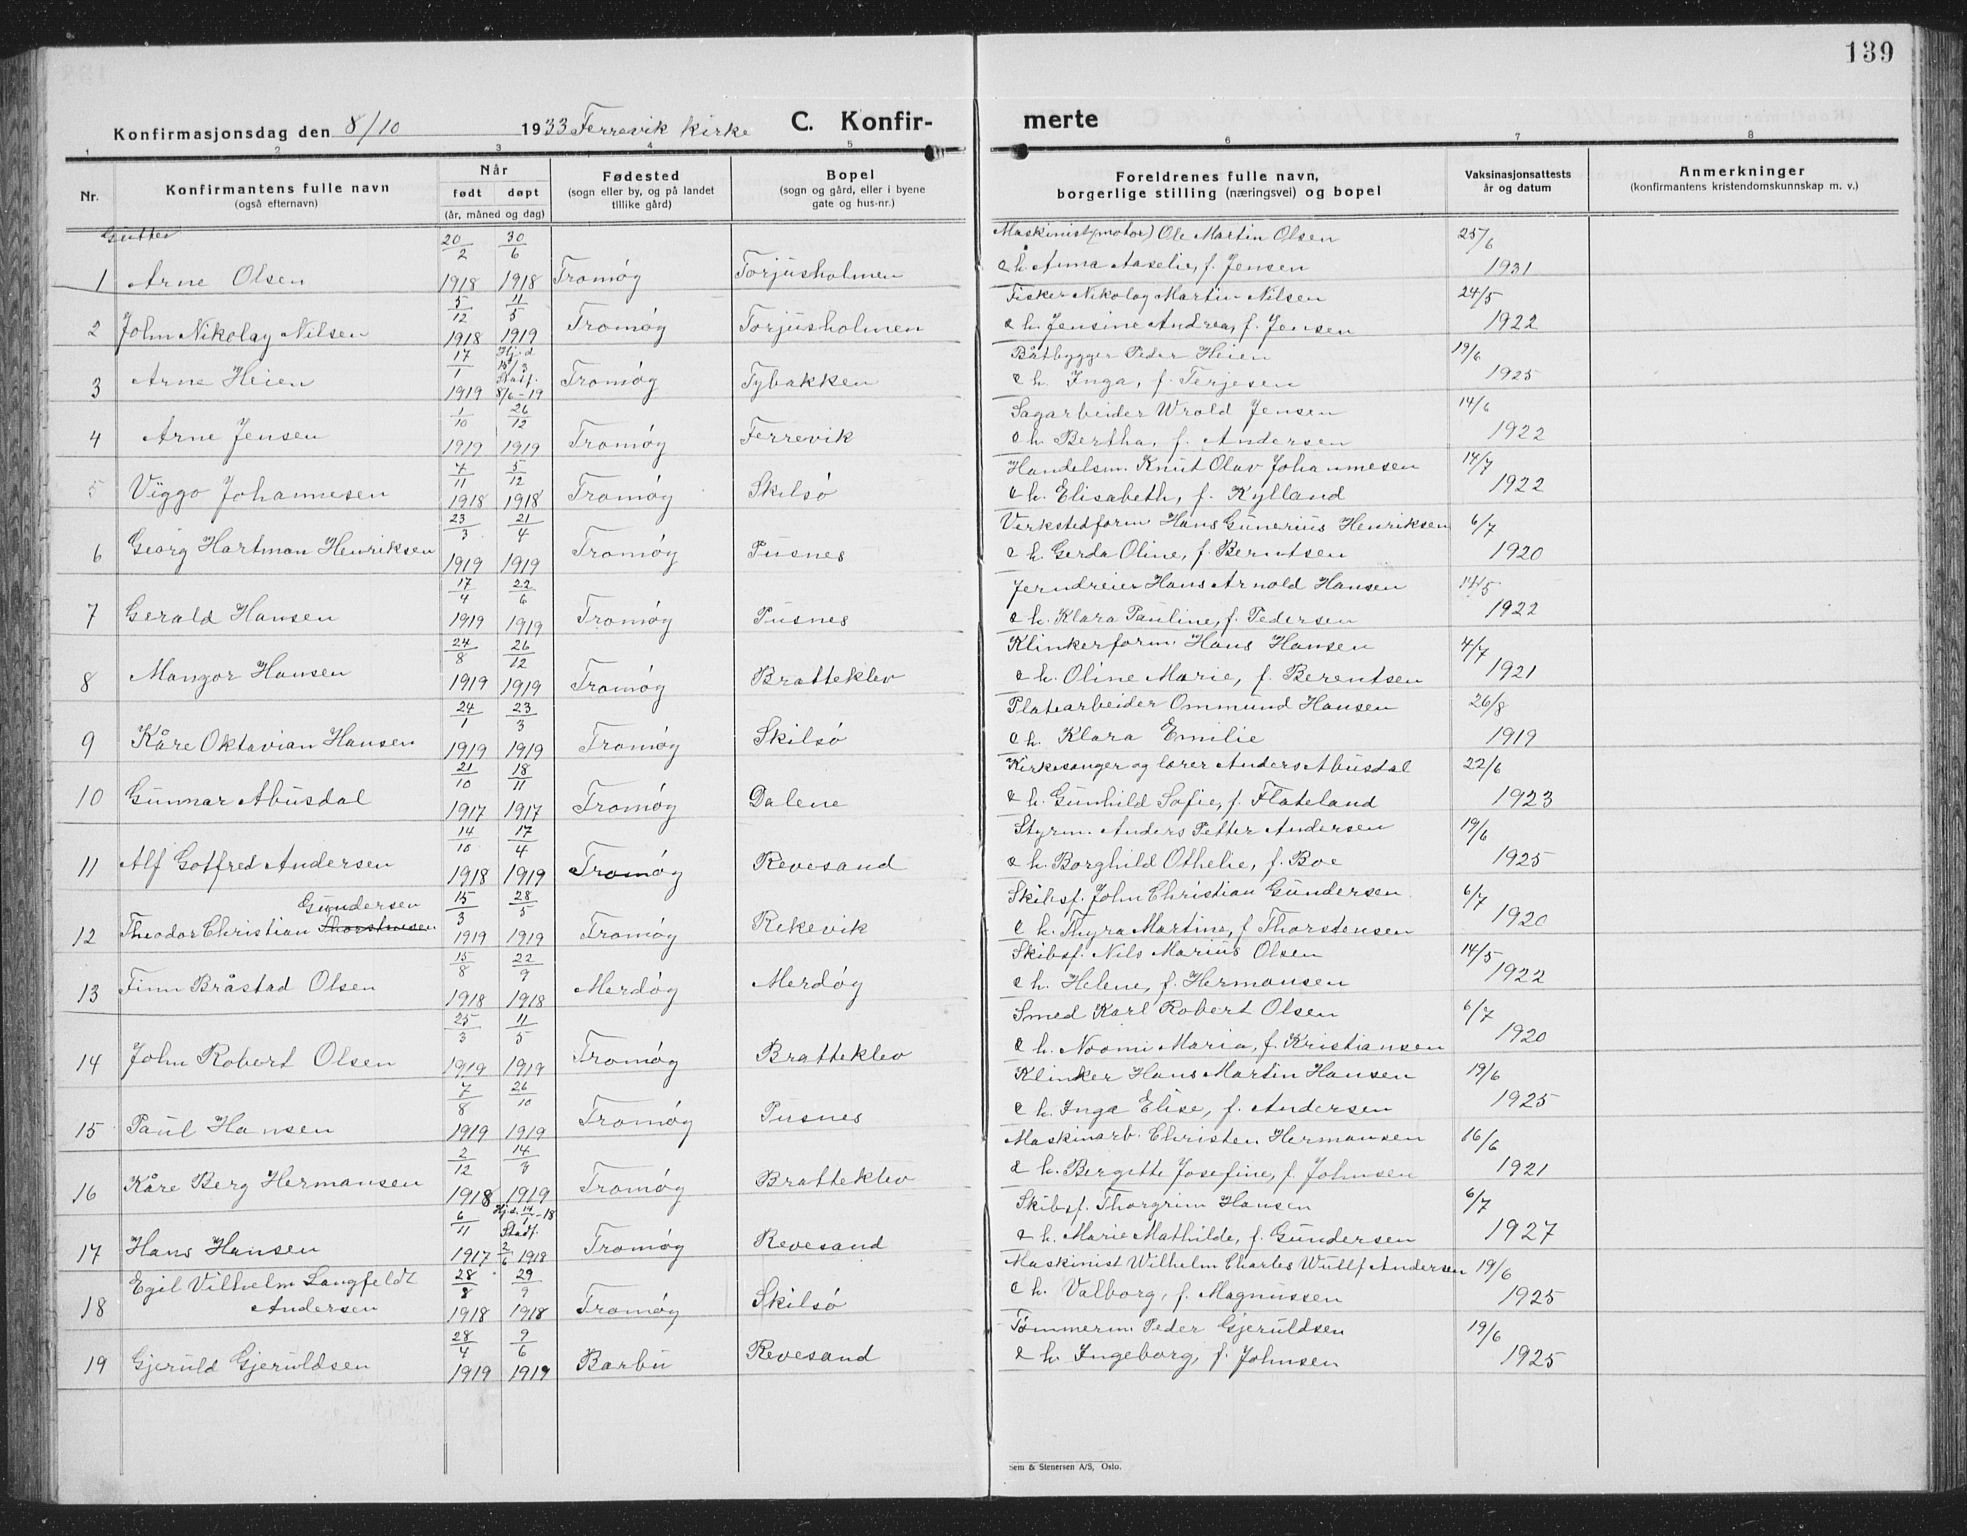 139
Konfirmasjonsdag den 8/10 1933 Færevik kirke C. Konfir- merte
1 2 3 4 5 6 7 8
Nr. Konfirmantens fulle navn (også efternavn) Når født døpt (år, måned og dag) Fødested (sogn eller by, og på landet tillike gård) Bopel (sogn og gård, eller i byene gate og hus-nr.) Foreldrenes fulle navn, borgerlige stilling (næringsvei) og bopel Vaksinasjonsattests år og datum Anmerkninger (konfirmantens kristendomskunnskap m. v.)
Gutter
1 Arne Olsen 20/2 1918 30/6 1918 Tromøy Torjusholmen Maskinist (motor) Ole Martin Olsen
& h. Anna Aaselie, f. Jensen 25/6 1931
2 John Nikolay Nilsen 5/12 1918 11/5 1919 Tromøy Torjusholmen Fisker Nikolay Martin Nilsen
& h. Jensine Andrea, f. Jensen 24/5 1922
3 Arne Heien 17/1 1919 Hj. d. 15/3 Stadf. 8/6-19 Tromøy Tybakken Båtbygger Peder Heien
& h. Inga, f. Terjesen 19/6 1925
4 Arne Jensen 1/10 1919 26/12 1919 Tromøy Ferrevik Sagarbeider Wrold Jensen
& h. Bertha, f. Andersen 14/6 1922
5 Viggo Johannesen 7/11 1918 5/12 1918 Tromøy Skilsø Handelsm. Knut Olav Johannesen
& h. Elisabeth, f. Kylland 14/7 1922
6 Georg Hartman Henriksen 23/3 1919 21/4 1919 Tromøy Pusnes Verkstedform. Hans Gunerius Henriksen
& h. Gerda Oline, f. Berntsen 6/7 1920
7 Gerald Hansen 17/4 1919 22/6 1919 Tromøy Pusnes Jerndreier Hans Arnold Hansen
& h. Klara Pauline, f. Pedersen 14/5 1922
8 Mangor Hansen 24/8 1919 26/12 1919 Tromøy Bratteklev Klinkerform. Hans Hansen
& h. Oline Marie, f. Berentsen 4/7 1921
9 Kåre Oktavian Hansen 24/1 1919 23/3 1919 Tromøy Skilsø Platearbeider Ommund Hansen
& h. Klara Emilie 26/8 1919
10 Gunnar Abusdal 21/10 1917 18/11 1917 Tromøy Dalene Kirkesanger og lærer Anders Abusdal
& h. Gunhild Sofie, f. Flateland 22/6 1923
11 Alf Gotfred Andersen 14/10 1918 17/4 1919 Tromøy Revesand Styrm. Anders Petter Andersen
& h. Borghild Othelie, f. Boe 19/6 1925
12 Theodor Christian Gundersen 15/3 1919 28/5 1919 Tromøy Rekevik Skibsf. John Christian Gundersen
& h. Thyra Martine, f. Thorstensen 6/7 1920
13 Finn Bråstad Olsen 15/8 1918 22/9 1918 Merdøy Merdøy Skibsf. Nils Marius Olsen
& h. Helene, f. Hermansen 14/5 1922
14 John Robert Olsen 25/3 1919 11/5 1919 Tromøy Bratteklev Smed Karl Robert Olsen
& h. Noomi Maria, f. Kristiansen 6/7 1920
15 Paul Hansen 7/8 1919 26/10 1919 Tromøy Pusnes Klinker Hans Martin Hansen
& h. Inga Elise, f. Andersen 19/6 1925
16 Kåre Berg Hermansen 2/12 1918 14/3 1919 Tromøy Bratteklev Maskinarb. Christen Hermansen
& h. Bergitte Josefine, f. Johnsen 16/6 1921
17 Hans Hansen 6/11 1917 Hj. d. 14/1-18 Stadf. 2/6 1918 Tromøy Revesand Skibsf. Thorgrim Hansen
& h. Marie Mathilde, f. Gundersen 6/7 1927
18 Egil Vilhelm Langfeldt Andersen 28/8 1918 29/9 1918 Tromøy Skilsø Maskinist Wilhelm Charles Wulff Andersen
& h. Valborg, f. Magnussen 19/6 1925
19 Gjeruld Gjeruldsen 28/4 1919 9/6 1919 Barbu Revesand Tømmerm. Peder Gjeruldsen
& h. Ingeborg, f. Johnsen 19/6 1925
Sem & Stenersen A/S, Oslo.